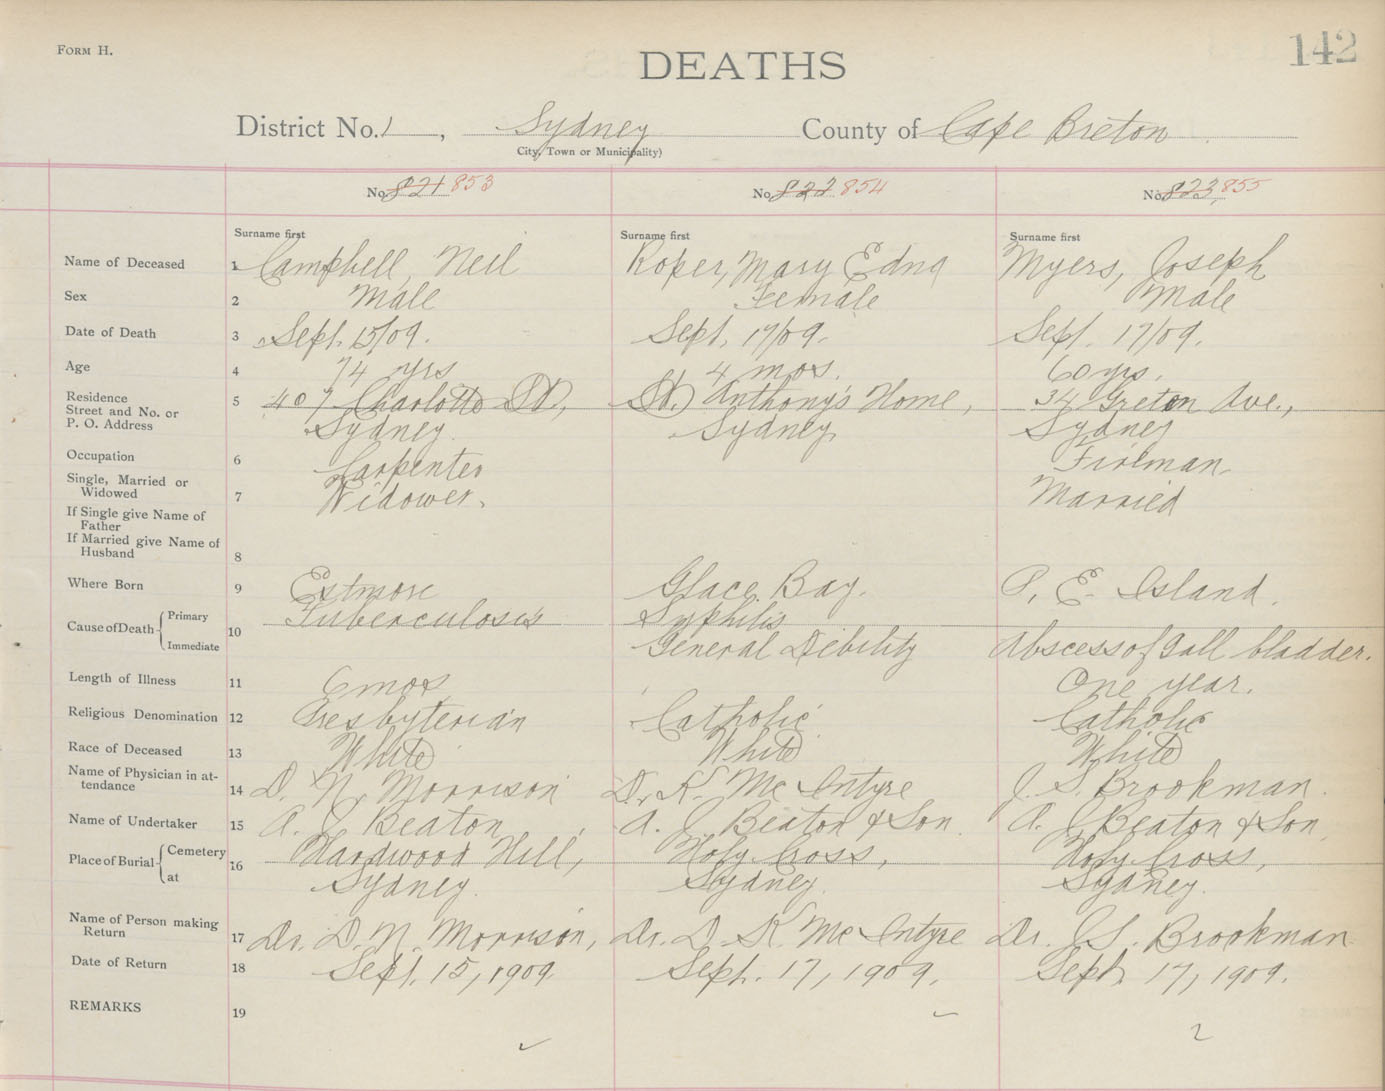 FORM H.
DEATHS
142
District No. 1, Sydney County of Cape Breton
City, Town or Municipality)
No. 821 853 No. 822 854 No. 823, 855
Surname first Surname first Surname first
Name of Deceased 1 Campbell, Neil Roper, Mary Edna Myers, Joseph
Sex 2 Male Female Male
Date of Death 3 Sept. 15/09. Sept. 17/09. Sept. 17/09.
Age 4 74 yrs 4 mos. 60 yrs.
Residence 5 407 Charlotte St., St. Anthony's Home, 34 Ave.,
Street and No. or
P. O. Address Sydney Sydney Sydney
Occupation 6 Carpenter Fireman
Single, Married or
Widowed 7 Widower. Married
If Single give Name of
Father
If Married give Name of
Husband 8
Where Born 9 Estmore Glace Bay. P. E. Island.
Cause of Death Primary 10 Tuberculosis Syphilis
Immediate General Debility Abscess of Gall bladder.
Length of Illness 11 6 mos One year.
Religious Denomination 12 Presbyterian Catholic Catholic
Race of Deceased 13 White White White
Name of Physician in at-
tendance 14 D. N. Morrison D. K. McIntyre J. S. Brookman.
Name of Undertaker 15 A. J. Beaton A. J. Beaton & Son. A. J. Beaton & Son,
Place of Burial Cemetery 16 Hardwood Hill, Holy Cross, Holy Cross,
at Sydney. Sydney. Sydney.
Name of Person making
Return 17 Dr. D. N. Morrison, Dr. D. K. McIntyre Dr. J. S. Brookman
Date of Return 18 Sept. 15, 1909 Sept. 17, 1909. Sept. 17, 1909.
REMARKS 19